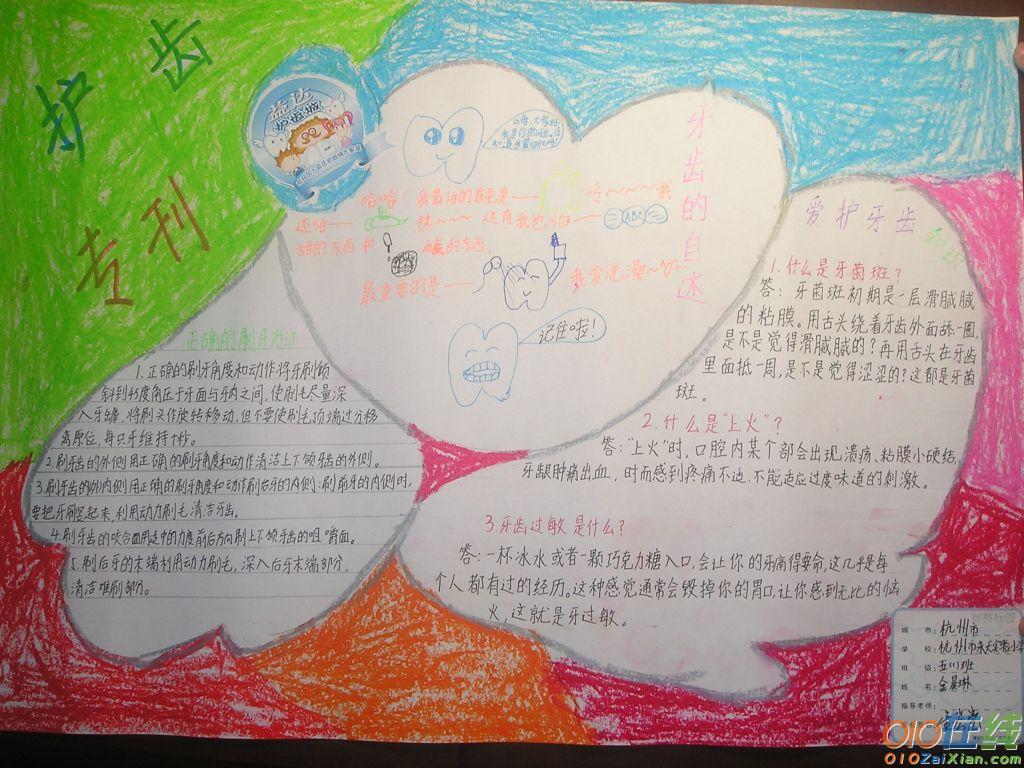 护齿
专刊
益达
护齿城
嗨,大家好,
我是你的牙齿。
牙齿的自述
哈哈!我最怕的首先是—— 冷~~~~我
还怕—— 热~~~ 还有我也怕—— ABC
的东西和 的东西。
最重要的是—— 我爱洗澡~
记住啦!
正确的刷牙方法
1.正确的刷牙角度和动作将牙刷倾
斜到45度角压于牙面与牙肉之间,使刷毛尽量深
入牙缝,将刷头作旋转移动,但不要使刷毛顶端过分移
离原位,每只牙维持十秒。
2.刷牙齿的外侧用正确的刷牙角度和动作清洁上下颌牙齿的外侧。
3.刷牙齿的内侧用正确的刷牙角度和动作刷后牙的内侧;刷前牙的内侧时,
要把牙刷竖起来,利用动力刷毛清洁牙齿。
4.刷牙齿的咬合面用适中的力度前后方向刷上下颌牙齿的咀嚼面。
5.刷后牙的末端利用动力刷毛,深入后牙末端部分,
清洁难刷部分。
爱护牙齿
知识
1.什么是牙菌斑?
答:牙菌斑初期是一层滑腻腻
的粘膜。用舌头绕着牙齿外面舔一圈,
是不是觉得滑腻腻的?再用舌头在牙齿
里面抵一周,是不是觉得涩涩的?这都是牙菌
斑。
2.什么是“上火”?
答:“上火”时,口腔内某个部会出现溃疡、粘膜小硬结,
牙龈肿痛出血,时而感到疼痛不适,不能适应过度味道的刺激。
3.牙齿过敏是什么?
答:一杯冰水或者一颗巧克力糖入口,会让你的牙痛得要命,这几乎是每
个人都有过的经历。这种感觉通常会毁掉你的胃口,让你感到无比的恼
火,这就是牙过敏。
城 市:杭州市
学 校:杭州市
班 级:五(1)班
姓 名:金晨琳
指导老师:
010在线
010ZaiXian.com